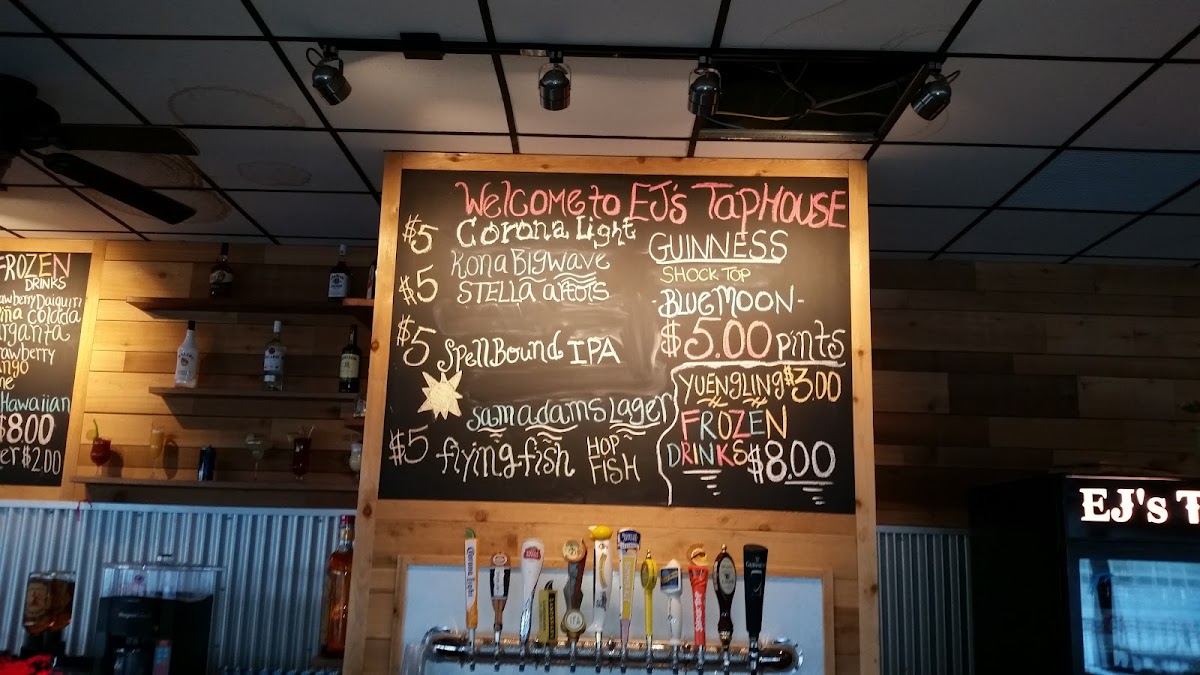 WELCOME to EJ's TapHOUSE
$5 Corona Light
Kona Bigwave
$5 STELLA artois
$5 SpellBound IPA
SamadamsLager
$5 flyingfish HOP FISH
GUINNESS
SHOCK TOP
-BLUE MOON-
$5.00 pints
YUENGLING $3.00
FROZEN
DRINKS $8.00
FROZEN
DRINKS
Daiquiri
colada
Hawaiian
$8.00
$2.00
EJ's T
Corona Light
GUINNESS